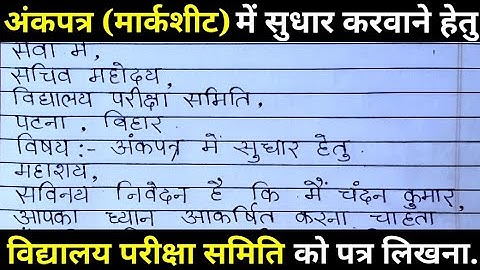 अंकपत्र (मार्कशीट) में सुधार करवाने हेतु
सेवा में,
सचिव महोदय,
विद्यालय परीक्षा समिति,
पटना, बिहार
विषय:- अंकपत्र में सुधार हेतु.
महाशय,
सविनय निवेदन है कि मैं चंदन कुमार,
आपका ध्यान आकर्षित करना चाहता
विद्यालय परीक्षा समिति को पत्र लिखना.